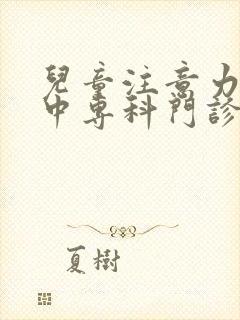 兒童注意力
中專科門診
夏樹